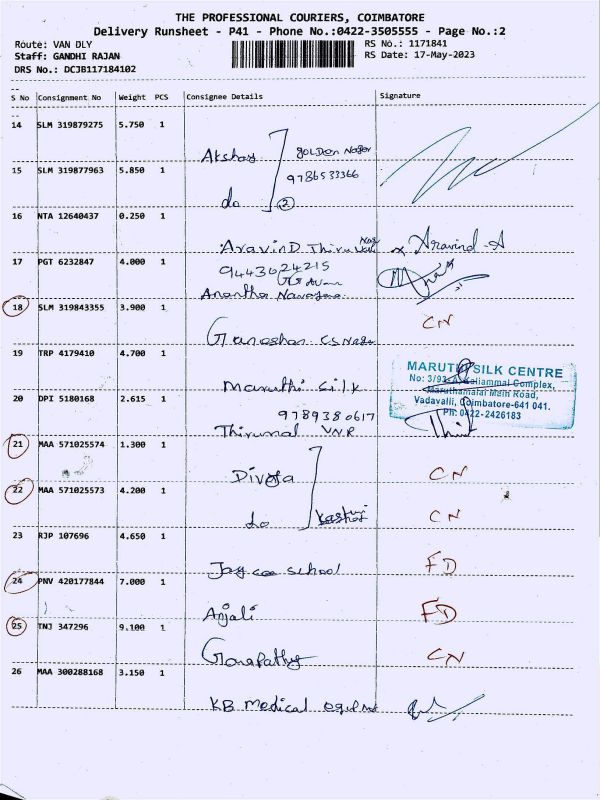 THE PROFESSIONAL COURIERS, COIMBATORE
Delivery Runsheet - P41 - Phone No.:0422-3505555 - Page No.:2
Route: VAN DLY
RS No.: 1171841
Staff: GANDHI RAJAN
RS Date: 17-May-2023
DRS No.: DCJB117184102
S No Consignment No Weight PCS Consignee Details Signature
14 SLM 319879275 5.750 1
Akshay Golden Nagar
9786533366
15 SLM 319877963 5.850 1
do 2
16 NTA 12640437 0.250 1
AravinD Thiru Nag x Aravind-A
17 PGT 6232847 4.000 1
9443024215
Anantha Narayana
18 SLM 319843355 3.900 1 CN
Ganeshan CS Nagar
19 TRP 4179410 4.700 1
Maruthi Silk
MARUTHI SILK CENTRE
No: 3/93-A, Kaliammal Complex,
Maruthamalai Main Road,
Vadavalli, Coimbatore-641 041.
Ph: 0422-2426183
20 DPI 5180168 2.615 1
9789380617
Thirumal VNR
21 MAA 571025574 1.300 1
Divya CN
22 MAA 571025573 4.200 1
do CN
23 RJP 107696 4.650 1
Jaycee School FD
24 PNV 420177844 7.000 1
Anjali FD
25 TNJ 347296 9.100 1
Ganapathy CN
26 MAA 300288168 3.150 1
KB Medical